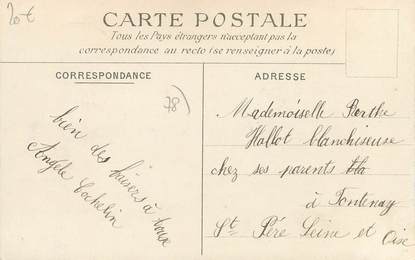 20€
CARTE POSTALE
Tous les Pays étrangers n'acceptant pas la
correspondance au recto (se renseigner à la poste)
CORRESPONDANCE
78)
bien des baisers à tous
Angèle Cochelin
ADRESSE
Mademoiselle Berthe
Hallot blanchisuse
chez ses parents bla
à Fontenay
St Père Seine et Oise